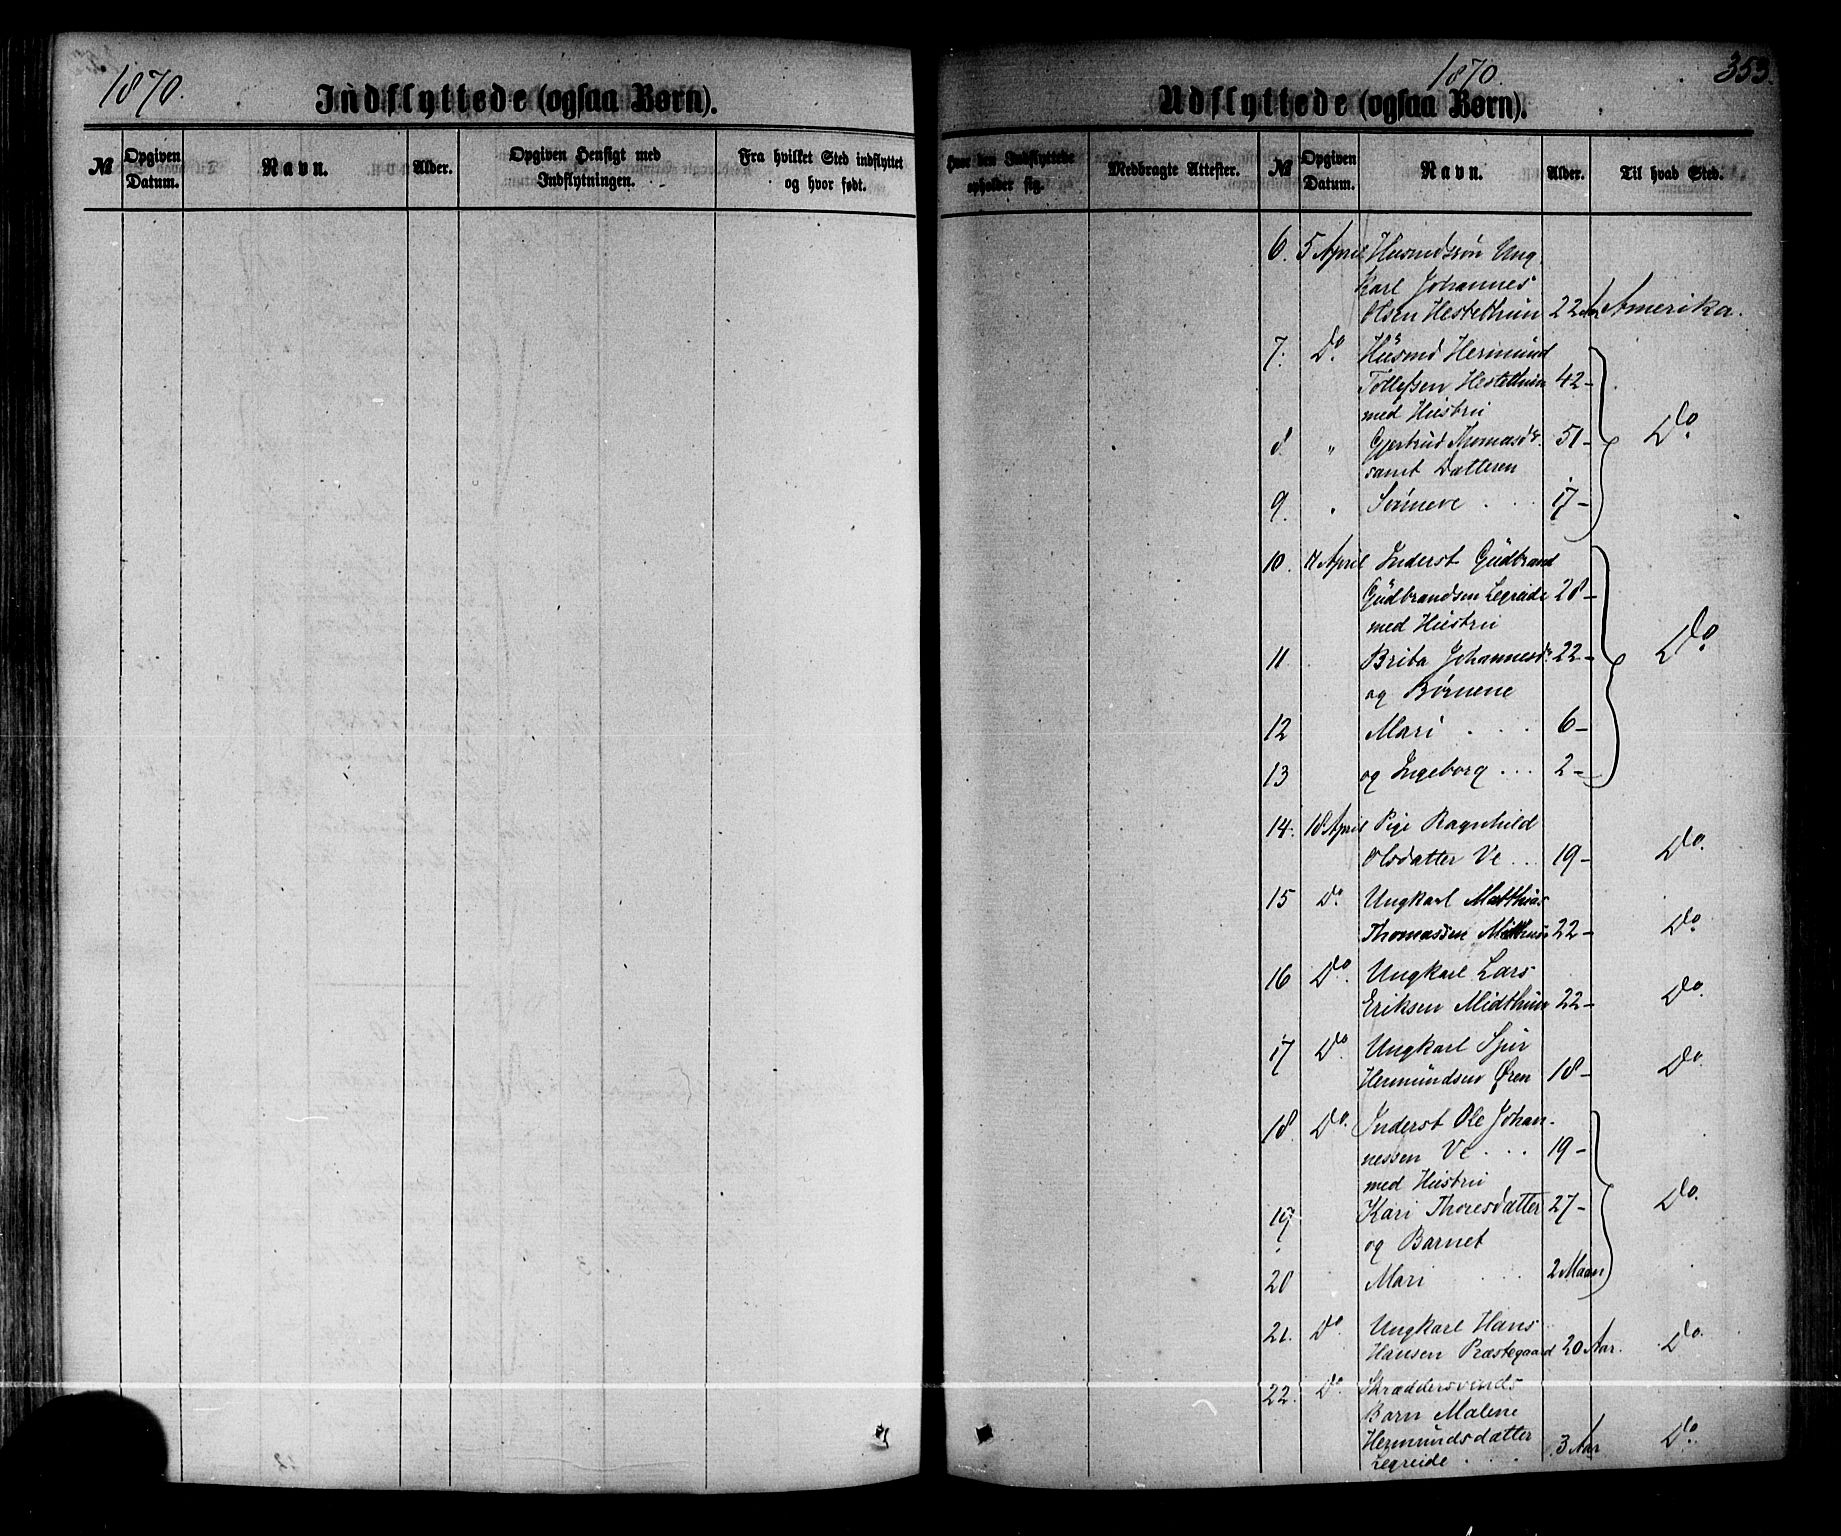 1870.
Indflyttede (ogsaa Børn).
№ Opgiven Datum. Navn. Alder. Opgiven Hensigt med Indflytningen. Fra hvilket Sted indflyttet og hvor født.
1870. 353.
Udflyttede (ogsaa Børn).
Hvor den Indflyttede opholder sig. Medbragte Attester. № Opgiven Datum. Navn. Alder. Til hvad Sted.
6. 5 April Husmdssøn Ung
karl Johannes
Olsen Hestethun 22 Aar Amerika.
7. Do. Husmd Hermund
Tollefssen Hestethun 42 –
med Hustru
8 " Gjertrud Thomasdr. 51 – Do.
samt Datteren
9. " Sønneve . . . 17 –
10. April Inderst Gudbrand
Gudbrandsen Legreide 28 –
med Hustru
11 Brita Johannesdr. 22 – Do.
og Børnene
12 Mari . . . 6 –
13 og Ingeborg ... 2 –
14. 18 April Pige Ragnhild
Olsdatter Ve ... 19 – Do.
15 Do. Ungkarl Matthias
Thomassen Midthun 22 – Do.
16 Do. Ungkarl Lars
Eriksen Midthun 22 – Do.
17 Do. Ungkarl Sjur
Hermundsen Øren 18 – Do.
18. Do. Inderst Ole Johan-
nessen Ve . . . 19 –
med Hustru
19 Kari Thoresdatter 27 – Do.
og Barnet
20 Mari . . . 2 Maan
21. Do. Ungkarl Hans
Hansen Præstegaard 20 Aar. Do.
22. Do. Skræddersvends
Barn Malene
Hermundsdatter 3 Aar Do.
Legreide . . . .